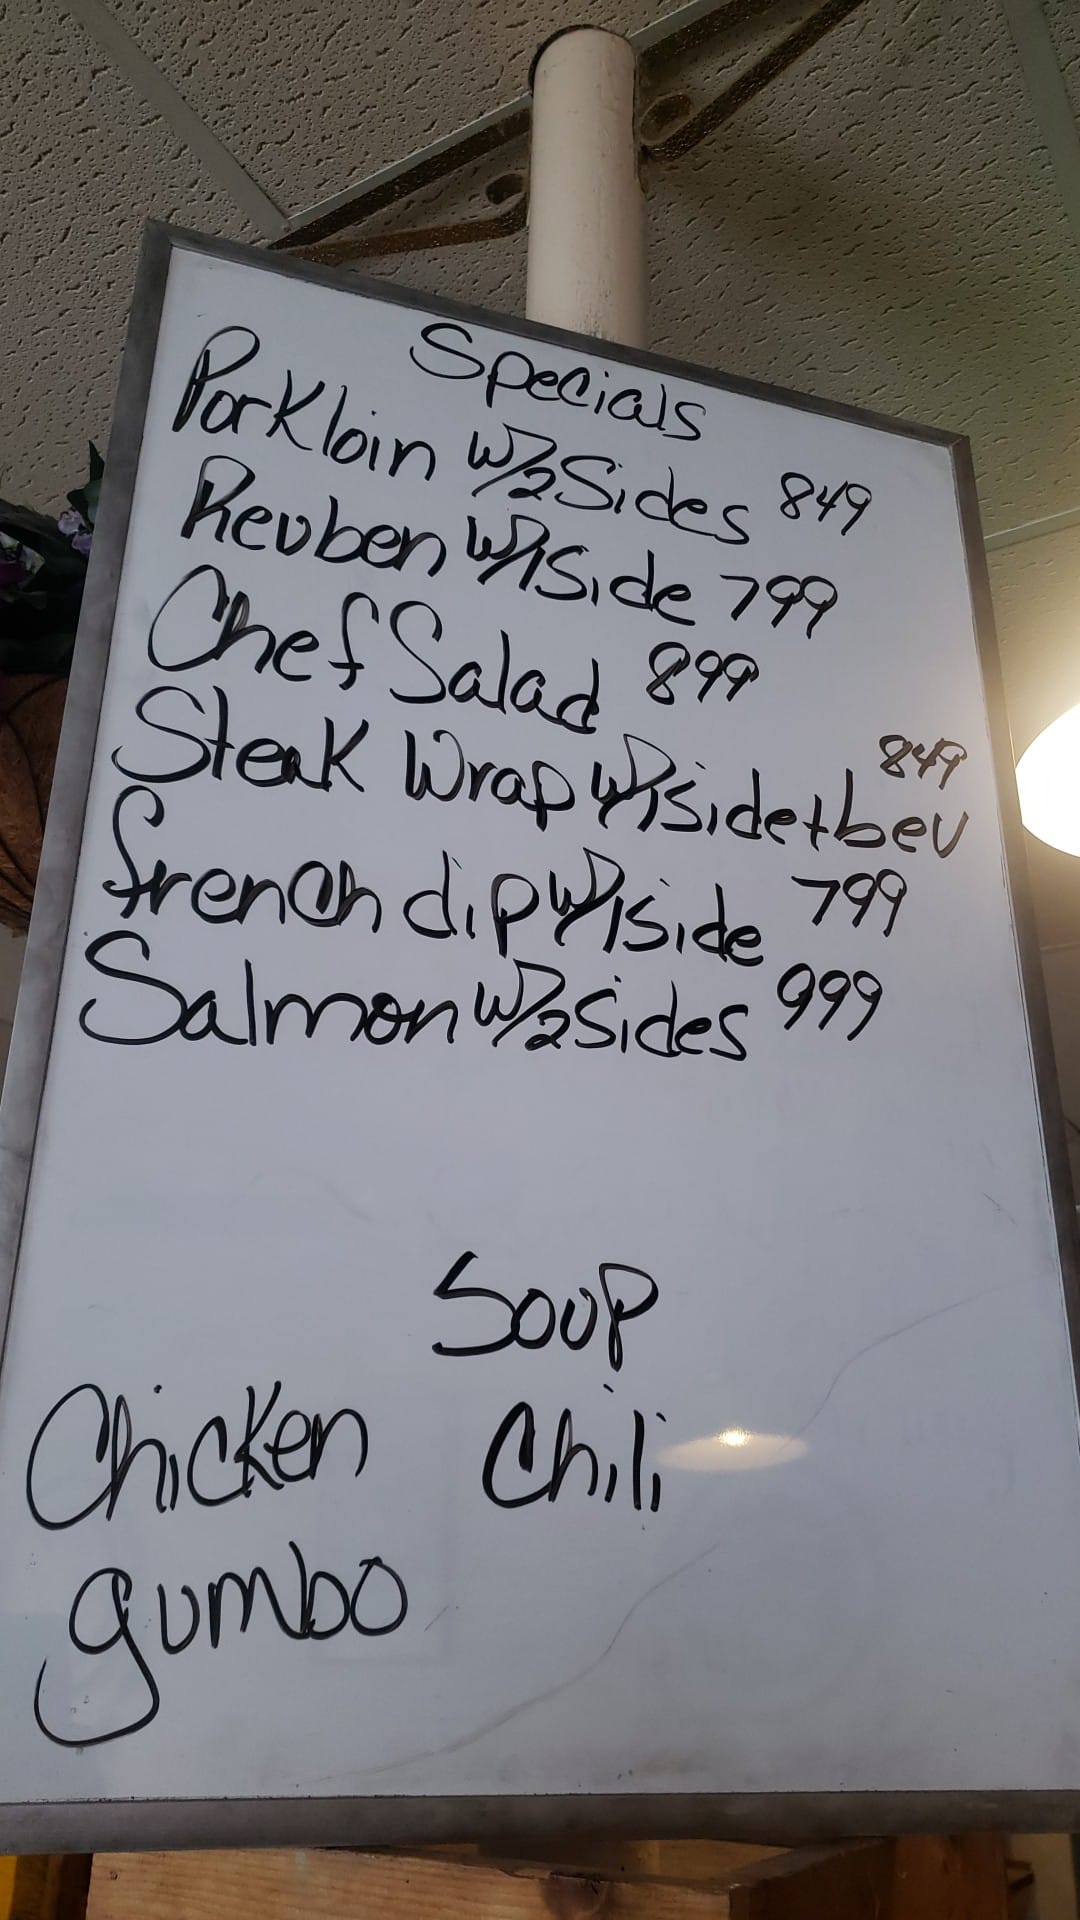 Specials
Pork loin w/2 Sides 849
Reuben w/1 Side 799
Chef Salad 899
Steak Wrap w/1 side + bev 849
french dip w/1 side 799
Salmon w/2 sides 999
Soup
Chicken Chili
gumbo